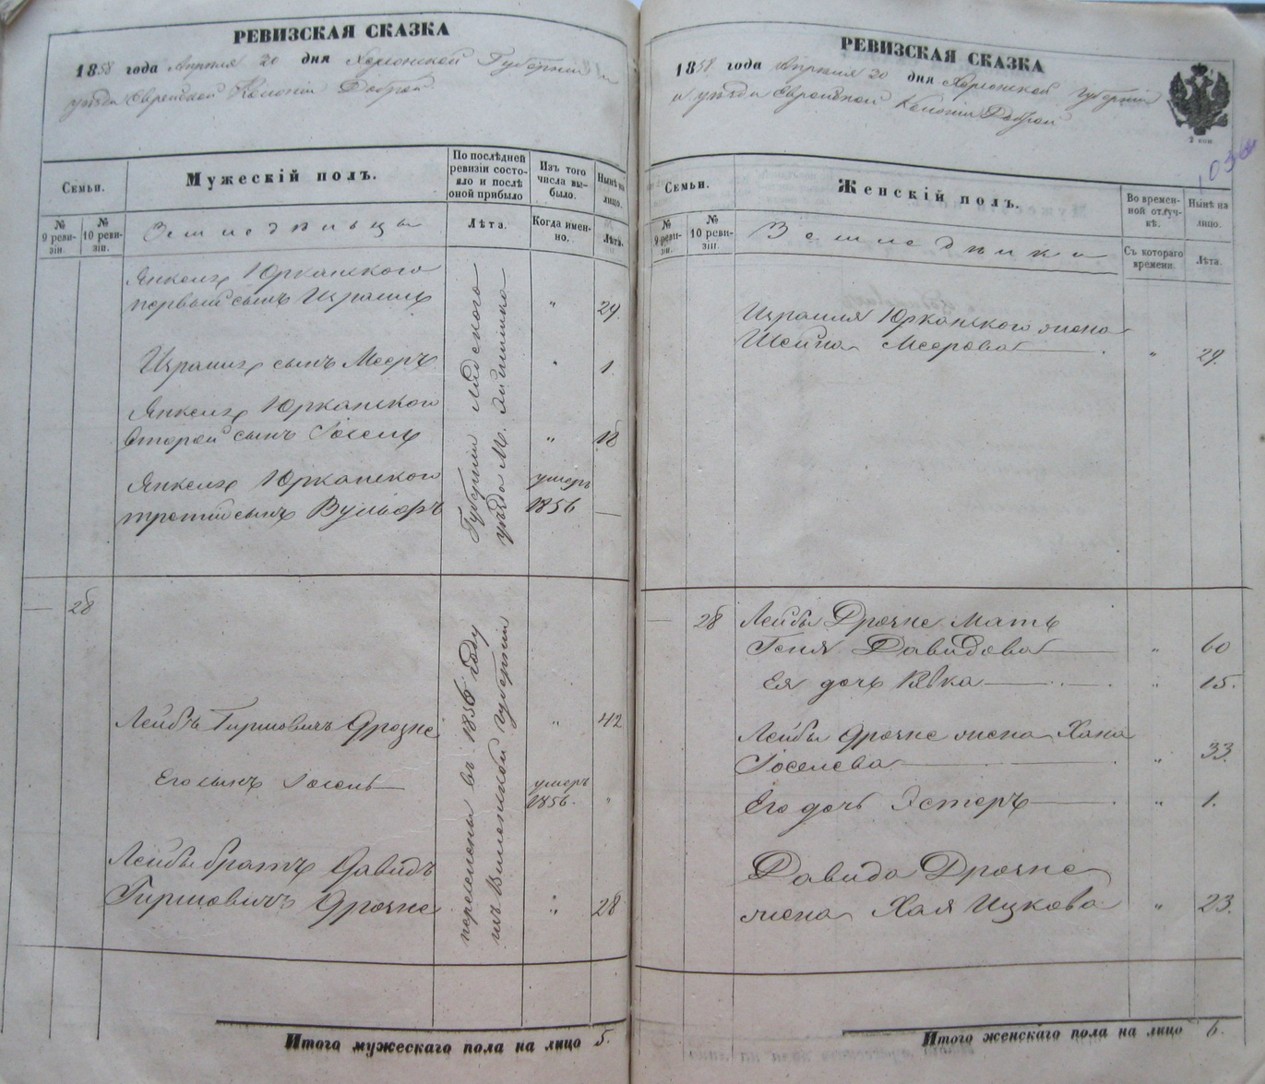 РЕВИЗСКАЯ СКАЗКА
1858 года Апреля 20 дня Херсонской Губернии и
уѣзда Еврейской Колоніи Доброй
Семьи.
Мужескій полъ.
По послѣдней
ревизіи состо-
яло и послѣ
оной прибыло
Изъ того
числа вы-
было.
Нынѣ на
лицо.
№
9 реви-
зіи.
№
10 реви-
зіи.
Земледѣльцы
Лѣта.
Когда имен-
но.
Лѣта.
Янкеля Юрканскаго
первый сынъ Израиль " 29.
Израиля сынъ Мееръ " 1.
Янкеля Юрканскаго
второй сынъ Іосель " 18
Янкеля Юрканскаго умеръ
третій сынъ Вульфъ 1856 —
Губерніи Лидскаго
уѣзда М.
— 28
Лейба Гиршовичъ Дрозне " 42
Его сынъ Іосель — умеръ
1856. "
Лейбы братъ Давидъ
Гиршовичъ Дрозне " 28
перечислены въ 1856 году
изъ Виленской губерніи
Итого мужескаго пола на лицо 5.
РЕВИЗСКАЯ СКАЗКА
1858 года Апреля 20 дня Херсонской Губерніи
и уѣзда Еврейской Колоніи Доброй
2 коп
Семьи.
Женскій полъ.
Во времен-
ной отлуч-
кѣ.
Нынѣ на
лицо.
№
9 реви-
зіи.
№
10 реви-
зіи.
Земледѣлки
Съ котораго
времени.
Лѣта.
Израиля Юрканскаго жена
Шейна Меерова — " 29.
— 28 Лейбы Дрозне мать
Геня Давидова — " 60
Ея дочь Ривка — " 15.
Лейбы Дрозне жена Хана
Іоселева — " 33.
Его дочь Эстеръ — " 1.
Давида Дрозне
жена Хая Ицкова " 23.
Итого женскаго пола на лицо 6.